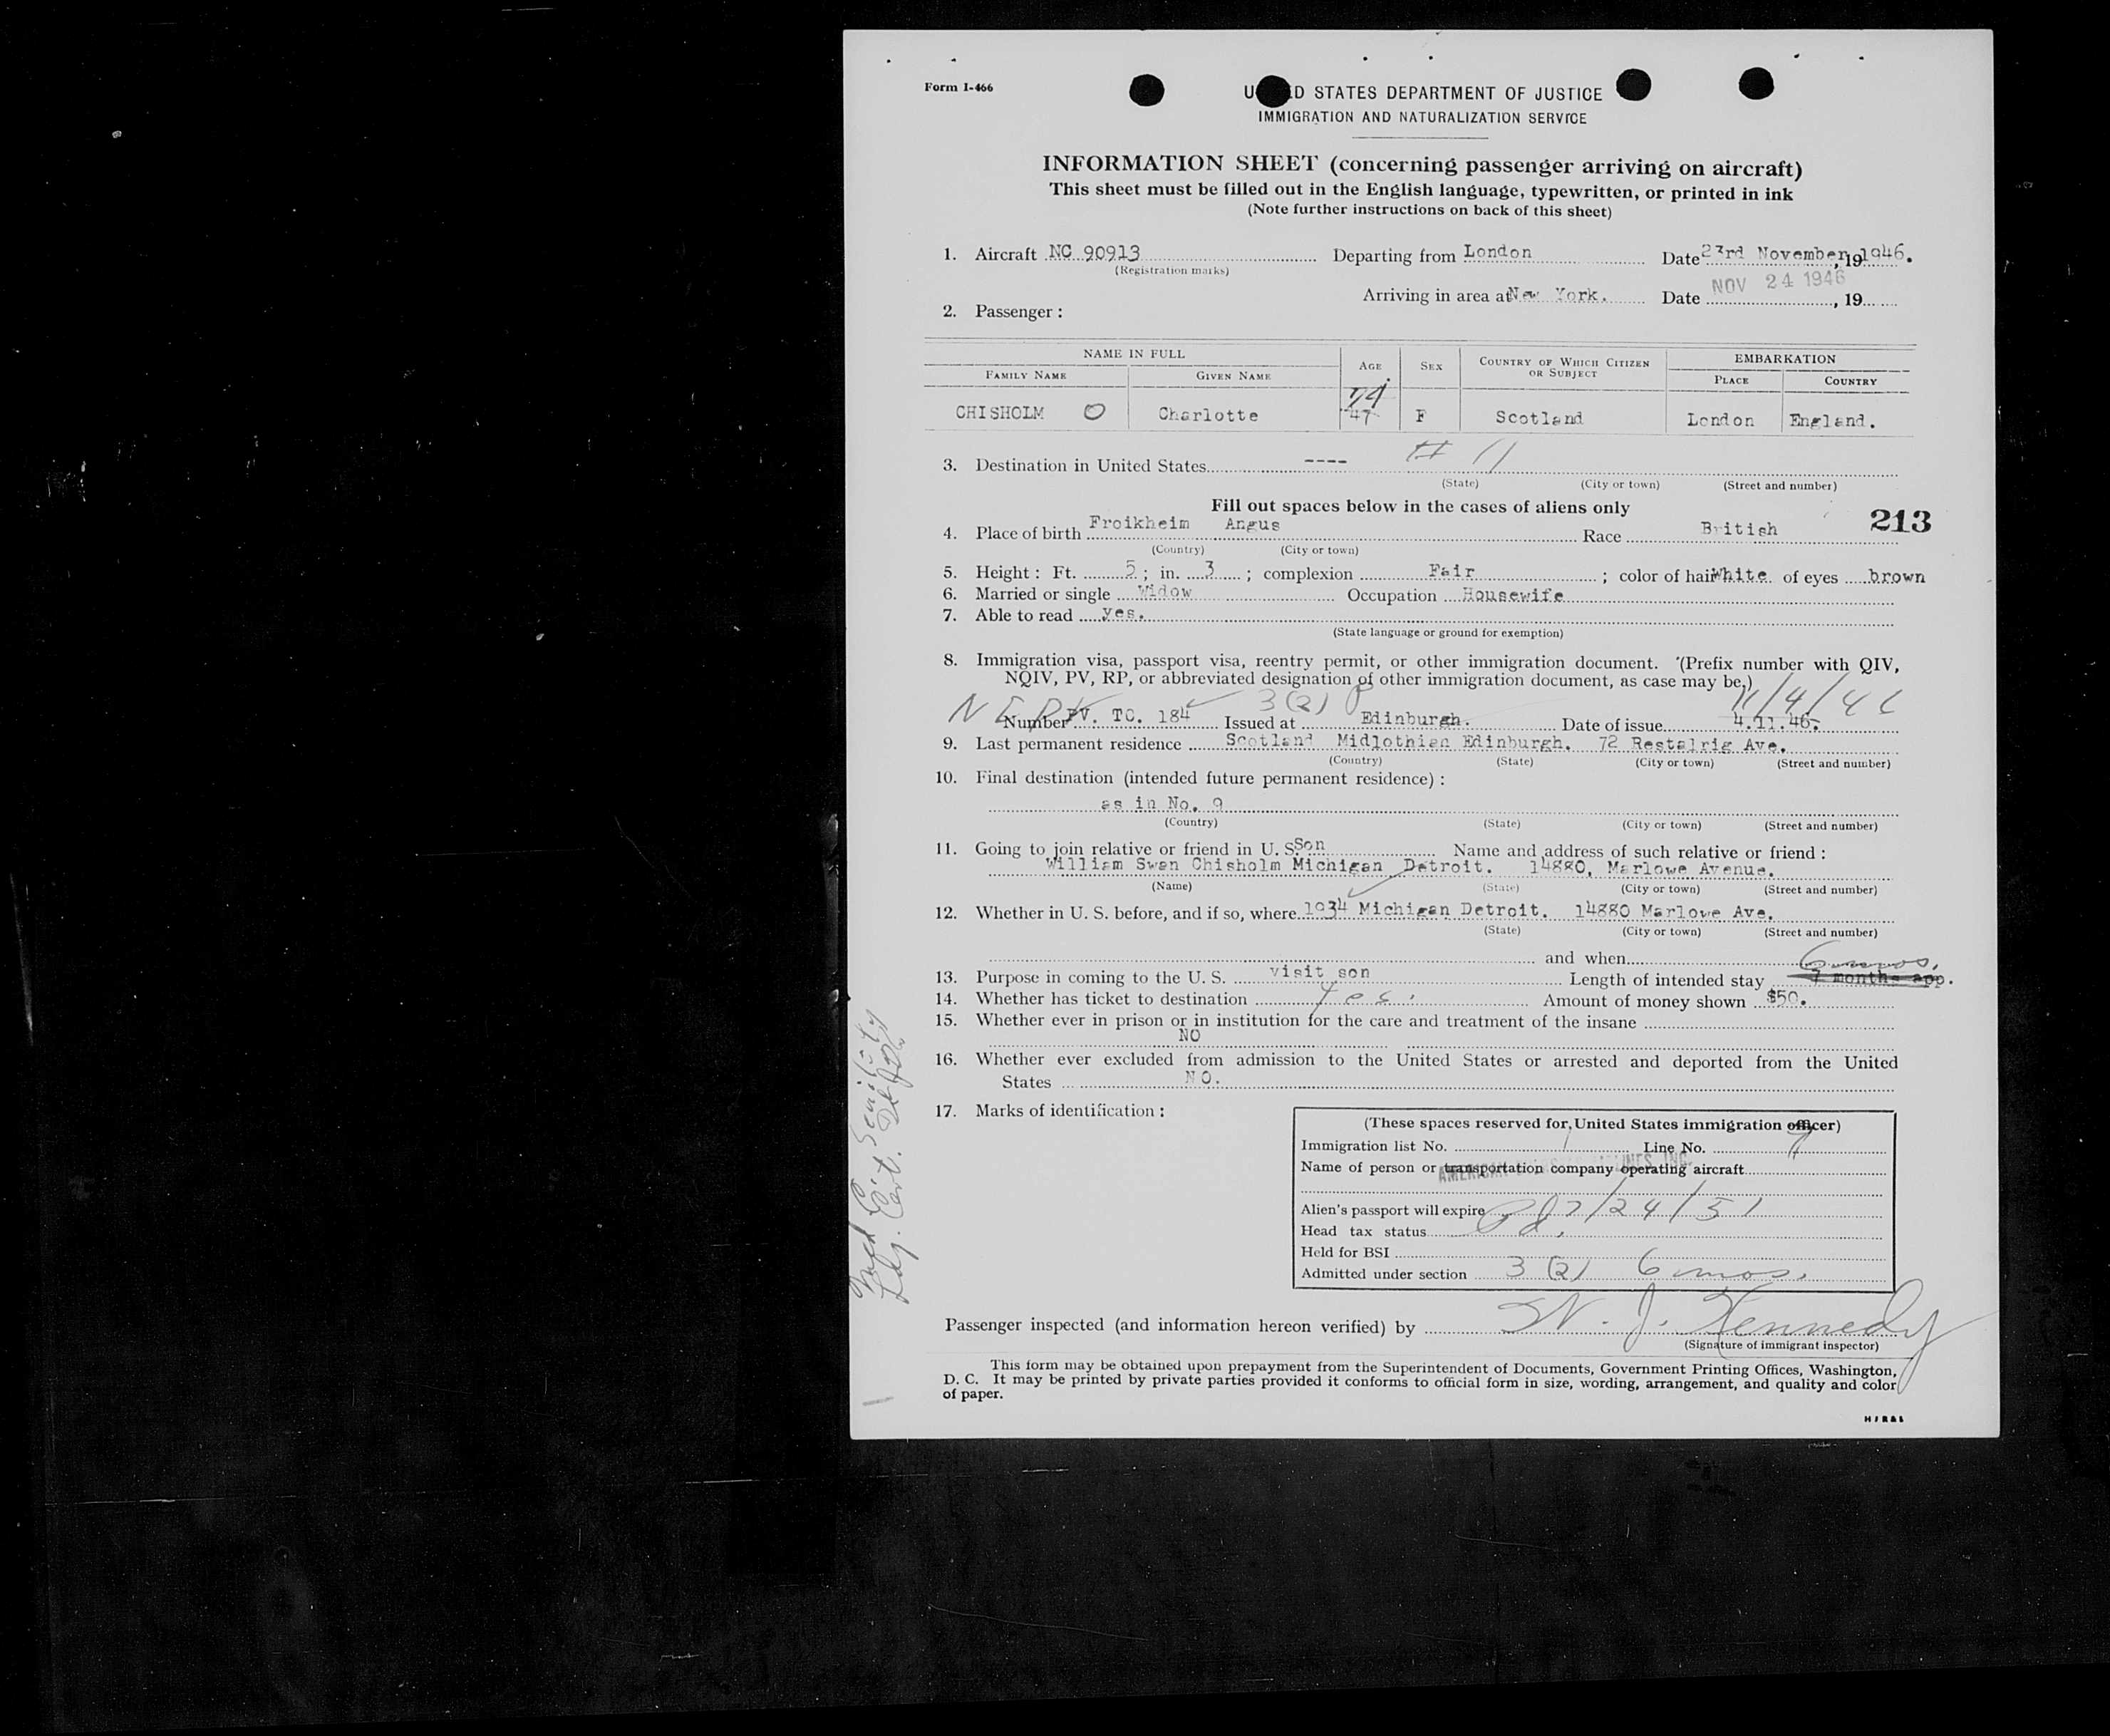 Form I-466
U D STATES DEPARTMENT OF JUSTICE
IMMIGRATION AND NATURALIZATION SERVICE
INFORMATION SHEET (concerning passenger arriving on aircraft)
This sheet must be filled out in the English language, typewritten, or printed in ink
(Note further instructions on back of this sheet)
1. Aircraft NC 90913 Departing from London Date 23rd November, 19 1946.
(Registration marks)
NOV 24 1946
Arriving in area at New York. Date , 19
2. Passenger :
NAME IN FULL AGE SEX COUNTRY OF WHICH CITIZEN OR SUBJECT EMBARKATION
FAMILY NAME GIVEN NAME PLACE COUNTRY
74
CHISHOLM O Charlotte 47 F Scotland London England.
3. Destination in United States ---- # 11
(State) (City or town) (Street and number)
Fill out spaces below in the cases of aliens only
213
4. Place of birth Froikheim Angus Race British
(Country) (City or town)
5. Height : Ft. 5 ; in. 3 ; complexion Fair ; color of hair White of eyes brown
6. Married or single Widow Occupation Housewife
7. Able to read yes.
(State language or ground for exemption)
8. Immigration visa, passport visa, reentry permit, or other immigration document. (Prefix number with QIV,
NQIV, PV, RP, or abbreviated designation of other immigration document, as case may be.)
3(2) 11/4/46
Number PV. TC. 184 Issued at Edinburgh. Date of issue 4.11.46.
9. Last permanent residence Scotland Midlothian Edinburgh. 72 Restalrig Ave.
(Country) (State) (City or town) (Street and number)
10. Final destination (intended future permanent residence) :
as in No. 9
(Country) (State) (City or town) (Street and number)
11. Going to join relative or friend in U. S. Son Name and address of such relative or friend :
William Swan Chisholm Michigan Detroit. 14880, Marlowe Avenue.
(Name) (State) (City or town) (Street and number)
12. Whether in U. S. before, and if so, where 1934 Michigan Detroit. 14880 Marlowe Ave.
(State) (City or town) (Street and number)
and when
6 mos.
13. Purpose in coming to the U. S. visit son Length of intended stay 7 months app.
14. Whether has ticket to destination Yes. Amount of money shown $50.
15. Whether ever in prison or in institution for the care and treatment of the insane
NO
16. Whether ever excluded from admission to the United States or arrested and deported from the United
States NO.
17. Marks of identification :
(These spaces reserved for United States immigration officer)
Immigration list No. 1 Line No. 7
Name of person or transportation company operating aircraft
Alien's passport will expire 7/24/51
Head tax status Pd.
Held for BSI
Admitted under section 3 (2) 6 mos.
Med Cert. Senility
Passenger inspected (and information hereon verified) by J. Kennedy
(Signature of immigrant inspector)
This form may be obtained upon prepayment from the Superintendent of Documents, Government Printing Offices, Washington,
D. C. It may be printed by private parties provided it conforms to official form in size, wording, arrangement, and quality and color
of paper.